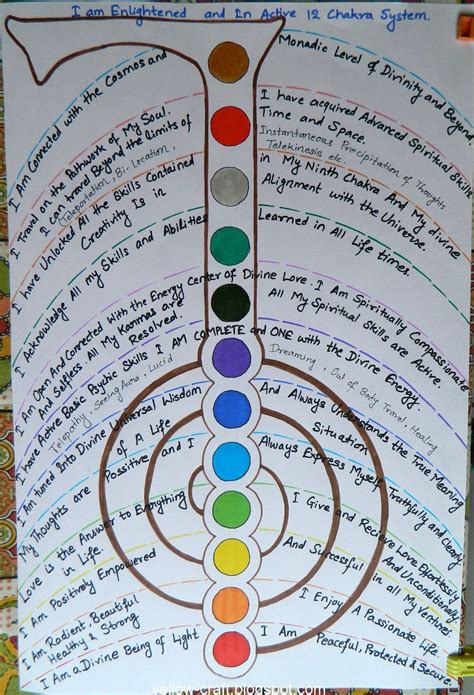 I am Enlightened and In Active 12 Chakra System.
I Am Connected with the Cosmos and Monadic Level of Divinity and Beyond
I Travel on the Pathwork of My Soul. I have acquired Advanced Spiritual Skills
I can travel Beyond the limits of Time and Space
Teleportation, Bi. Location, Instantaneous Precipitation of Thoughts
Telekinesis etc.
I have Unlocked All the Skills Contained in My Ninth Chakra And My divine
Creativity Is in Alignment with the Universe.
I Acknowledge All my Skills and Abilities Learned in All Life times.
I Am Open And Connected With the Energy Center of Divine Love. I Am Spiritually Compassionate
And Selfless All My Karmas are All My Spiritual Skills are Active.
Resolved.
I have Active Basic Psychic Skills I AM COMPLETE and ONE with the Divine Energy.
Telepathy, Seeing Aura, Lucid Dreaming, Out of Body Travel, Healing
I am tuned Into Divine Universal Wisdom And Always Understands the True Meaning
of A Life Situation
My Thoughts are Possitive and I Always Express Myself Truthfully and Clearly
Love is the Answer to Everything I Give and Recieve Love Effortlessly
in Life. And Unconditionally
I Am Positively Empowered And Successful in all My Ventures.
I Am Radient, Beautiful I Enjoy A Passionate Life
Healthy & Strong
I Am a Divine Being of Light I Am Peaceful, Protected & Secure.
yellow-craft.blogspot.com